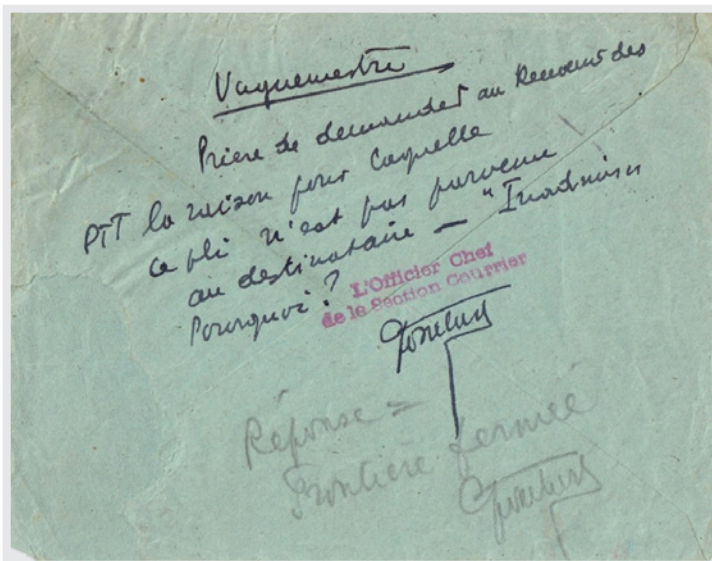 Vaguemestre
Prière de demander au Receveur des
PTT la raison pour laquelle
ce pli n'est pas parvenu
au destinataire — "Inadmis"
Pourquoi?
L'Officier Chef
de la Section Courrier
Réponse =
Frontière fermée